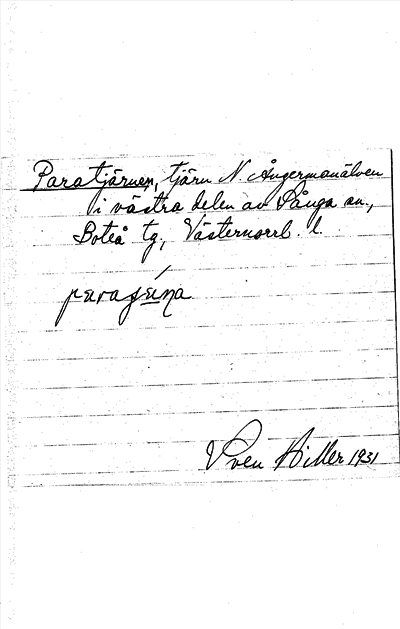 Paratjärnen, tjärn N. Ångermanälven
i västra delen av Sånga sn.,
Boteå tg, Västernorrl. l.
Sven Hiller 1931